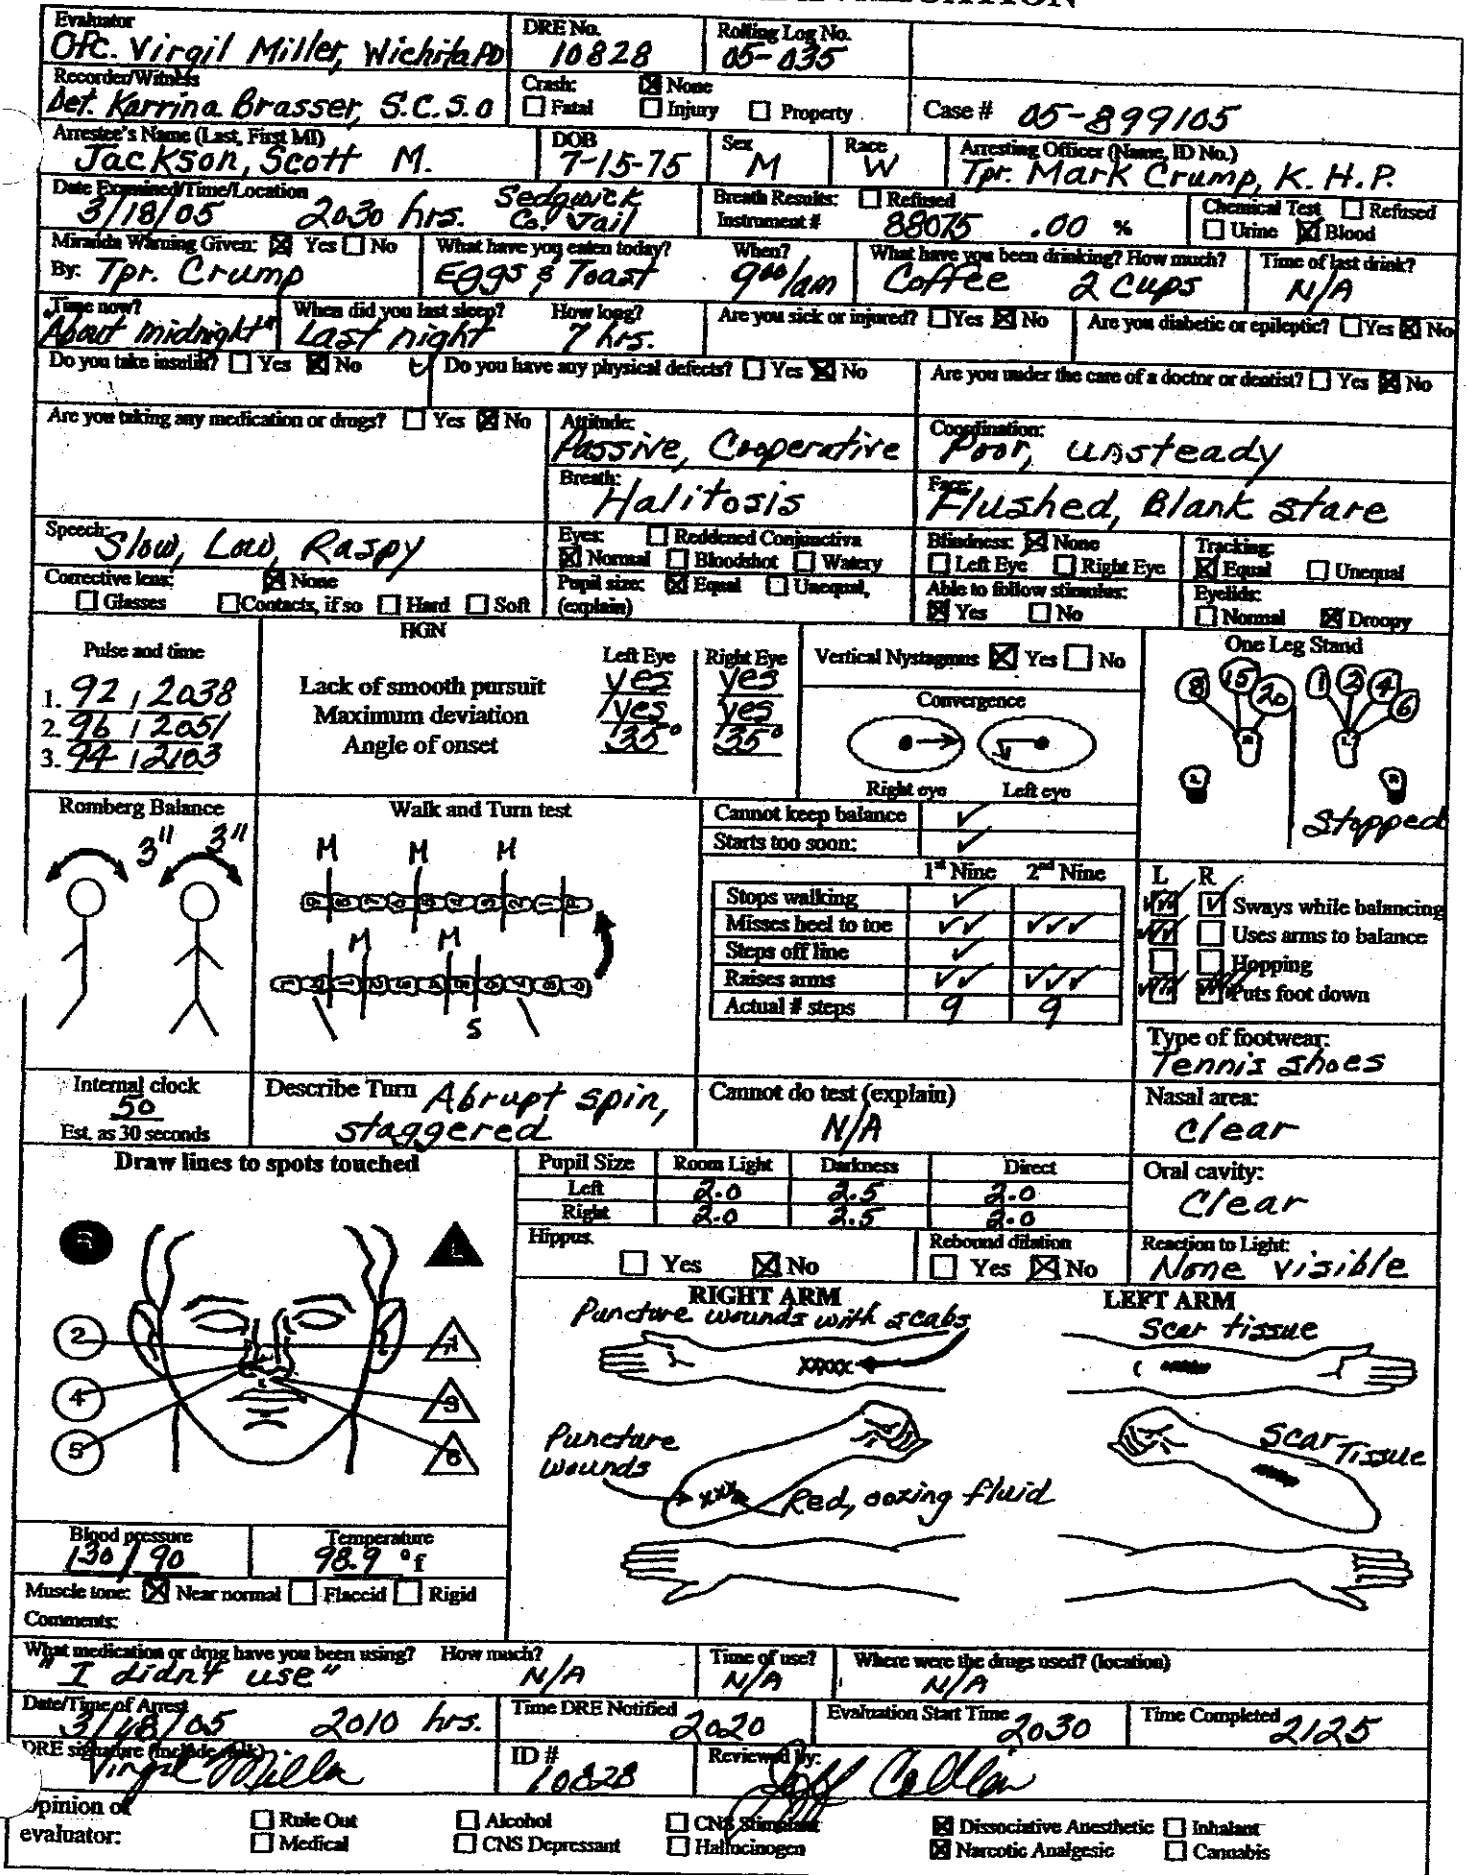 Evaluator
Ofc. Virgil Miller, Wichita PD
DRE No.
10828
Rolling Log No.
05-035
Recorder/Witness
Det. Karrina Brasser, S.C.S.O
Crash: ☒ None
☐ Fatal ☐ Injury ☐ Property
Case # 05-899105
Arrestee's Name (Last, First MI)
Jackson, Scott M.
DOB
7-15-75
Sex
M
Race
W
Arresting Officer (Name, ID No.)
Tpr. Mark Crump, K.H.P.
Date Examined/Time/Location
3/18/05 2030 hrs. Sedgwick Co. Jail
Breath Results: ☐ Refused
Instrument # 88075 .00 %
Chemical Test ☐ Refused
☐ Urine ☒ Blood
Miranda Warning Given: ☒ Yes ☐ No
By: Tpr. Crump
What have you eaten today? When?
Eggs & Toast 9:00/am
What have you been drinking? How much?
Coffee 2 cups
Time of last drink?
N/A
Time now?
"About midnight"
When did you last sleep? How long?
Last night 7 hrs.
Are you sick or injured? ☐ Yes ☒ No
Are you diabetic or epileptic? ☐ Yes ☒ No
Do you take insulin? ☐ Yes ☒ No
Do you have any physical defects? ☐ Yes ☒ No
Are you under the care of a doctor or dentist? ☐ Yes ☒ No
Are you taking any medication or drugs? ☐ Yes ☒ No
Attitude:
Passive, Cooperative
Coordination:
Poor, unsteady
Breath:
Halitosis
Face:
Flushed, Blank stare
Speech: Slow, Low, Raspy
Eyes: ☐ Reddened Conjunctiva
☒ Normal ☐ Bloodshot ☐ Watery
Blindness: ☒ None
☐ Left Eye ☐ Right Eye
Tracking:
☒ Equal ☐ Unequal
Corrective lens: ☒ None
☐ Glasses ☐ Contacts, if so ☐ Hard ☐ Soft
Pupil size: ☒ Equal ☐ Unequal,
(explain)
Able to follow stimulus:
☒ Yes ☐ No
Eyelids:
☐ Normal ☒ Droopy
Pulse and time
1. 92 / 2038
2. 96 / 2051
3. 94 / 2103
HGN
Left Eye Right Eye
Lack of smooth pursuit yes yes
Maximum deviation yes yes
Angle of onset 35° 35°
Vertical Nystagmus ☒ Yes ☐ No
Convergence
Right eye Left eye
One Leg Stand
8 15 20 1 2 4 6
L R L R
Stopped
Romberg Balance
3" 3"
Walk and Turn test
M M M
M M
S
Cannot keep balance ✓
Starts too soon: ✓
1st Nine 2nd Nine
Stops walking ✓
Misses heel to toe ✓✓ ✓✓✓
Steps off line ✓
Raises arms ✓✓ ✓✓✓
Actual # steps 9 9
L R
Sways while balancing
Uses arms to balance
Hopping
Puts foot down
Type of footwear:
Tennis shoes
Internal clock
50
Est. as 30 seconds
Describe Turn Abrupt spin,
staggered
Cannot do test (explain)
N/A
Nasal area:
Clear
Draw lines to spots touched
2 1
4 3
5 6
Pupil Size Room Light Darkness Direct
Left 2.0 2.5 2.0
Right 2.0 2.5 2.0
Oral cavity:
Clear
Hippus.
☐ Yes ☒ No
Rebound dilation
☐ Yes ☒ No
Reaction to Light:
None visible
RIGHT ARM LEFT ARM
Puncture wounds with scabs
Scar tissue
Puncture
wounds
Red, oozing fluid
Scar Tissue
Blood pressure
130 / 90
Temperature
98.9 °f
Muscle tone: ☒ Near normal ☐ Flaccid ☐ Rigid
Comments:
What medication or drug have you been using? How much?
"I didn't use" N/A
Time of use?
N/A
Where were the drugs used? (location)
N/A
Date/Time of Arrest
3/18/05 2010 hrs.
Time DRE Notified
2020
Evaluation Start Time
2030
Time Completed
2125
Virgil Miller
ID #
10828
Reviewed by:
Opinion of
evaluator:
☐ Rule Out ☐ Alcohol ☐ CNS Stimulant ☒ Dissociative Anesthetic ☐ Inhalant
☐ Medical ☐ CNS Depressant ☐ Hallucinogen ☒ Narcotic Analgesic ☐ Cannabis